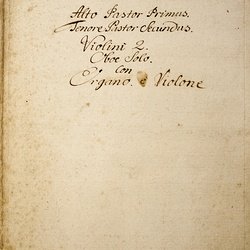 Alto Pastor Primus.
Tenore Pastor Secundus.
Violini 2.
Oboe Solo.
con
Organo e Violone